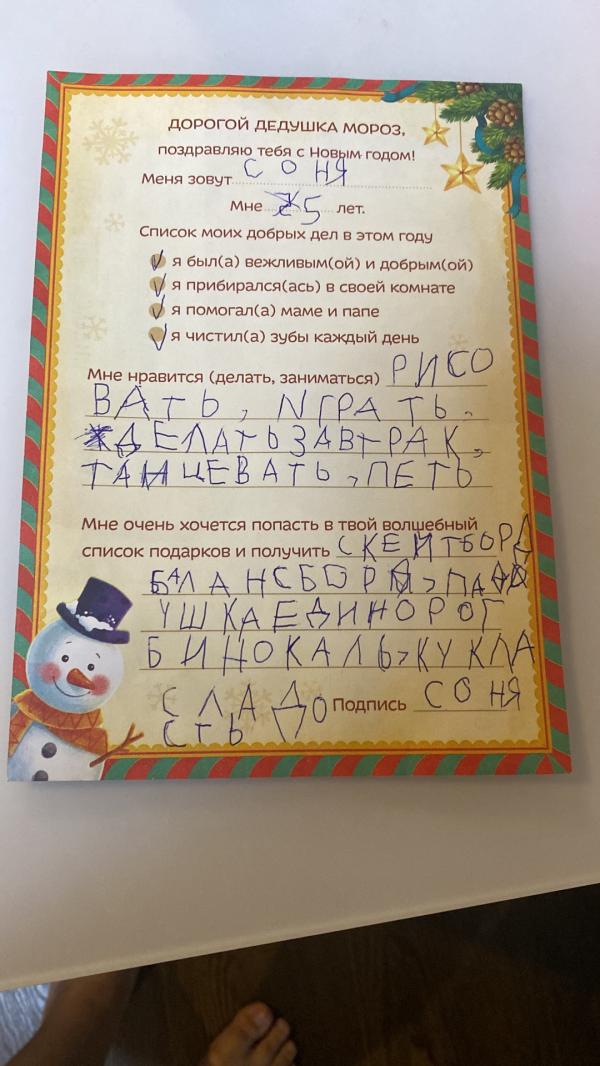 ДОРОГОЙ ДЕДУШКА МОРОЗ,
поздравляю тебя с Новым годом!
Меня зовут СОНЯ
Мне 5 лет.
Список моих добрых дел в этом году
я был(а) вежливым(ой) и добрым(ой)
я прибирался(ась) в своей комнате
я помогал(а) маме и папе
я чистил(а) зубы каждый день
Мне нравится (делать, заниматься) РИСО
ВАТЬ, ИГРАТЬ,
ДЕЛАТЬ ЗАВТРАК,
ТАНЦЕВАТЬ, ПЕТЬ
Мне очень хочется попасть в твой волшебный
список подарков и получить СКЕЙТБОРД
БАЛАНСБОРД, ПАД
УШКА ЕДИНОРОГ
БИНОКАЛЬ, КУКЛА
СЛАДО Подпись СОНЯ
СТЬ